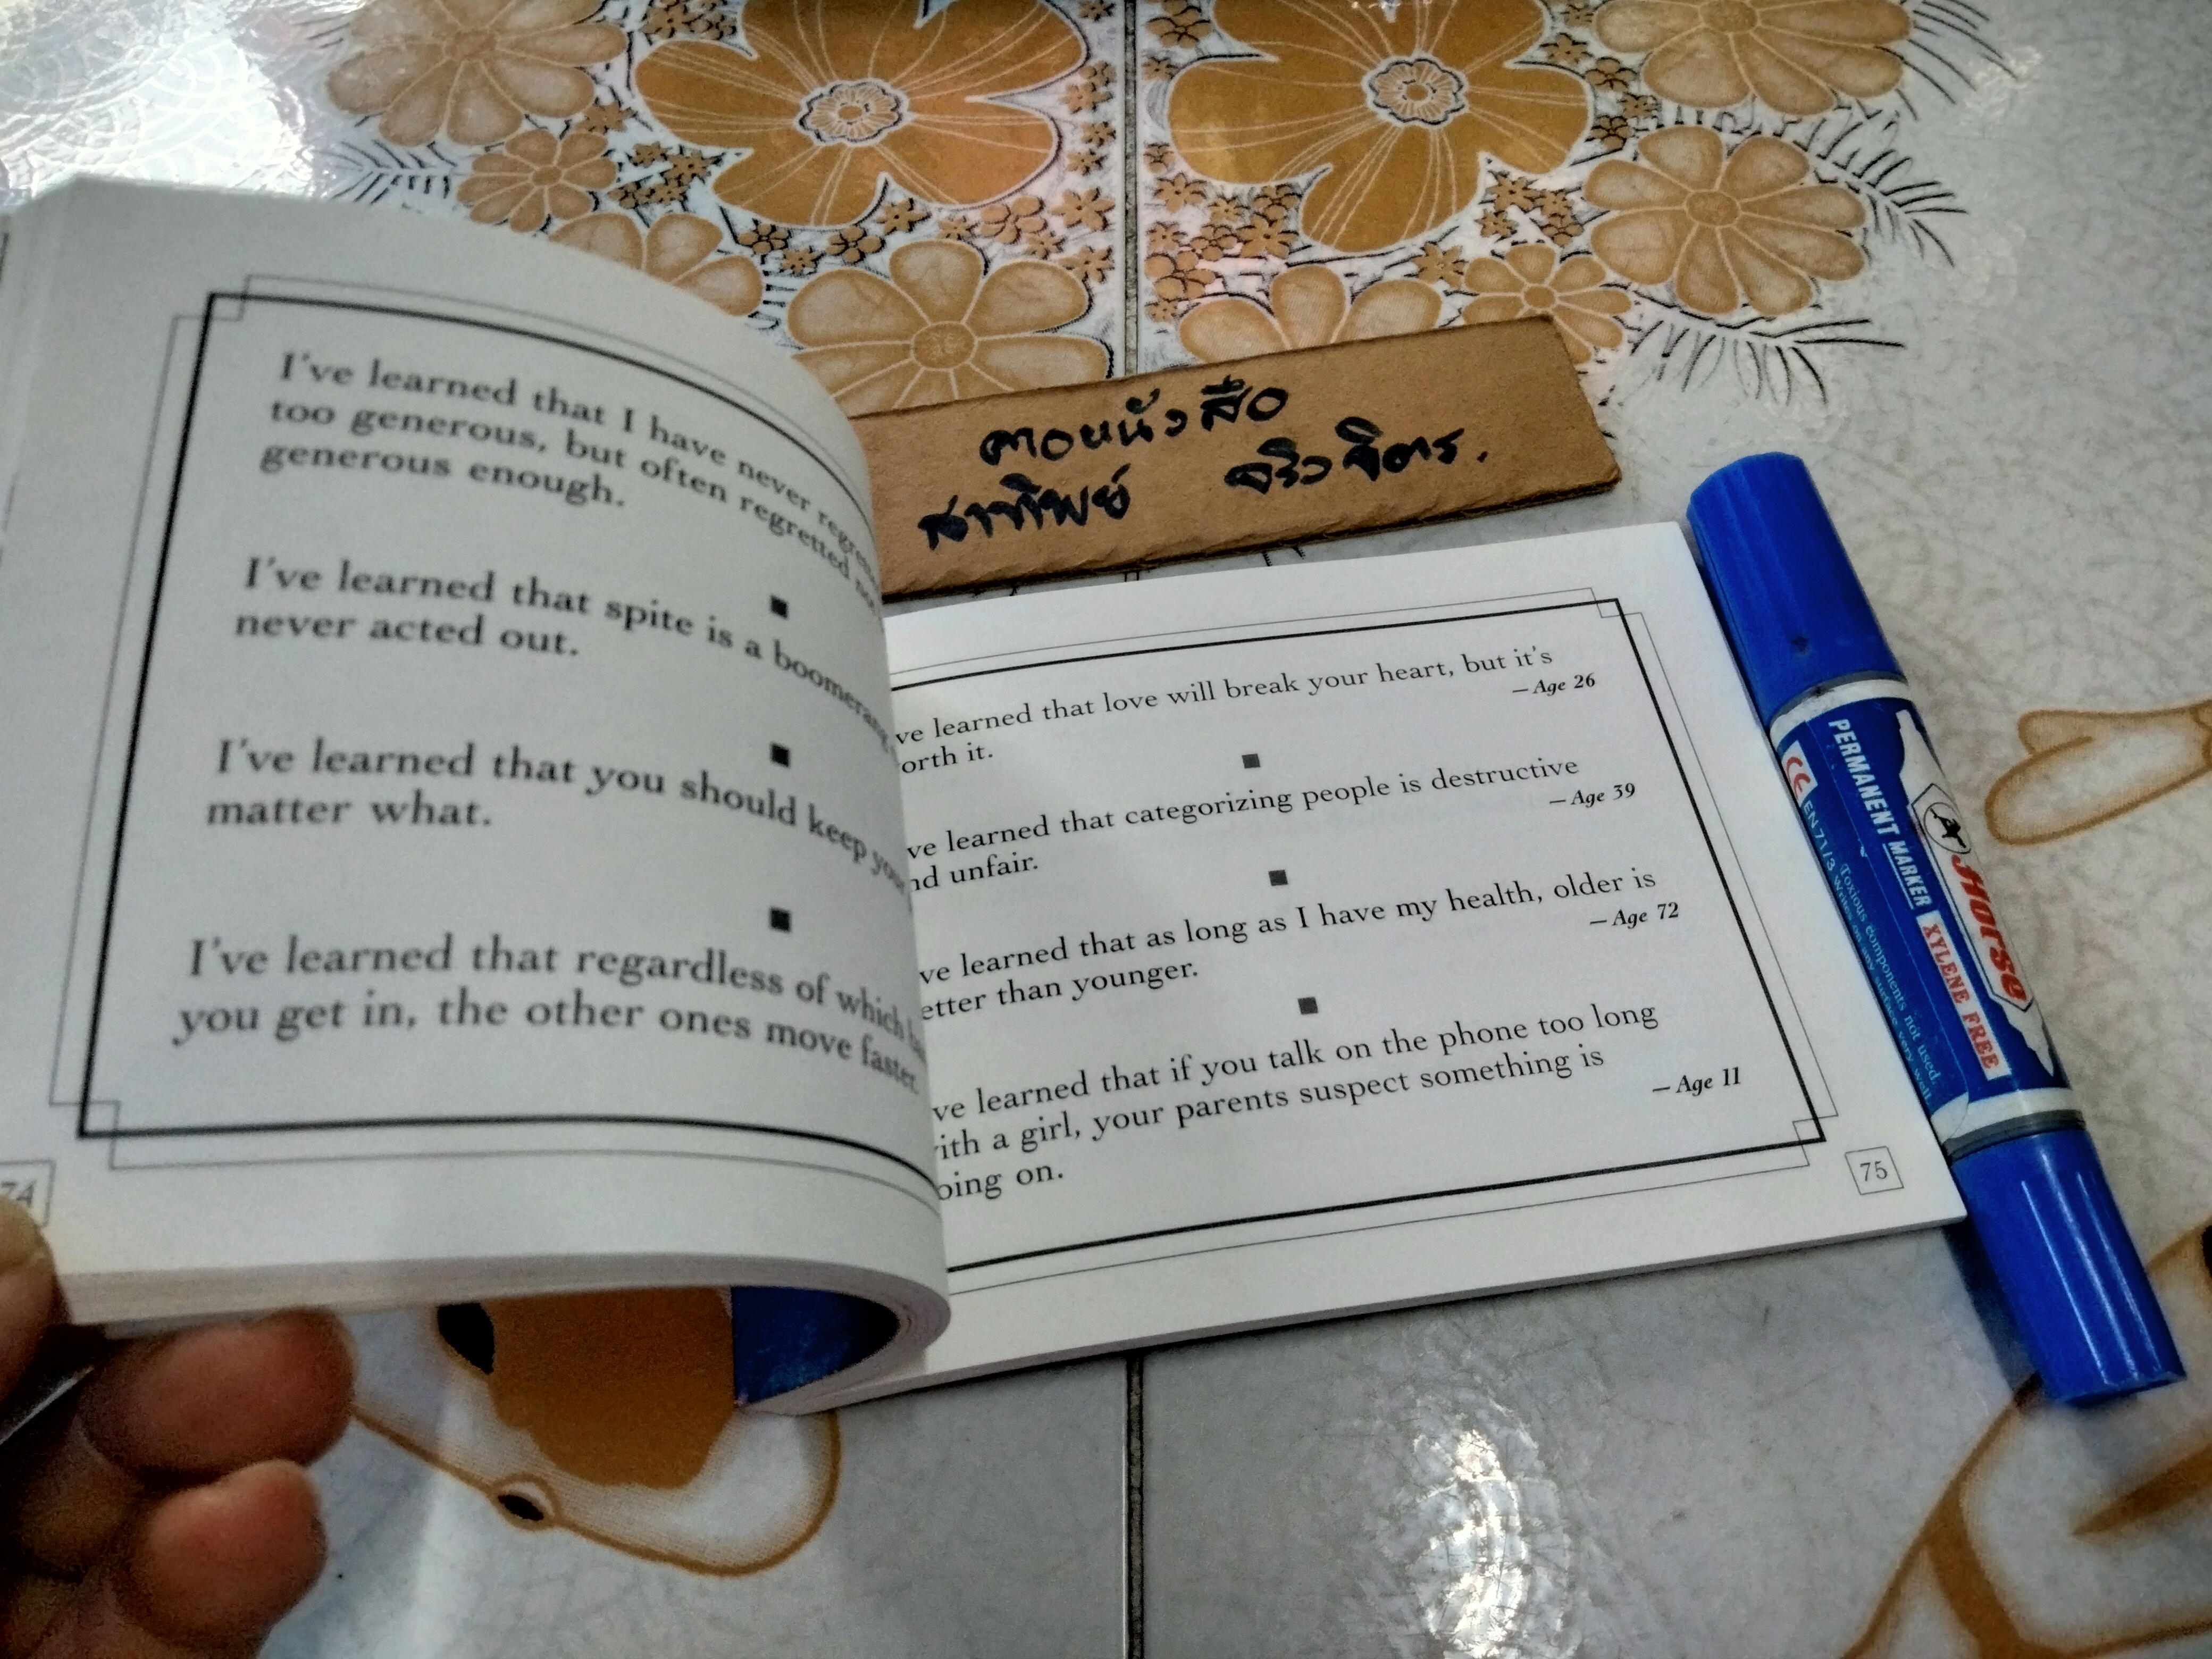 I've learned that I have never
too generous, but often regretted not
generous enough.
I've learned that spite is a boomerang
never acted out.
I've learned that you should keep
matter what.
I've learned that regardless of which
you get in, the other ones move faster.
74
ve learned that love will break your heart, but it's
orth it.
—Age 26
ve learned that categorizing people is destructive
nd unfair.
—Age 39
ve learned that as long as I have my health, older is
etter than younger.
—Age 72
ve learned that if you talk on the phone too long
ith a girl, your parents suspect something is
oing on.
—Age 11
75
ตอหนังสือ
สาทิพย์
Horse
PERMANENT MARKER XYLENE FREE
CE EN71/3 Writes on any surface very well.
Toxious components not used.